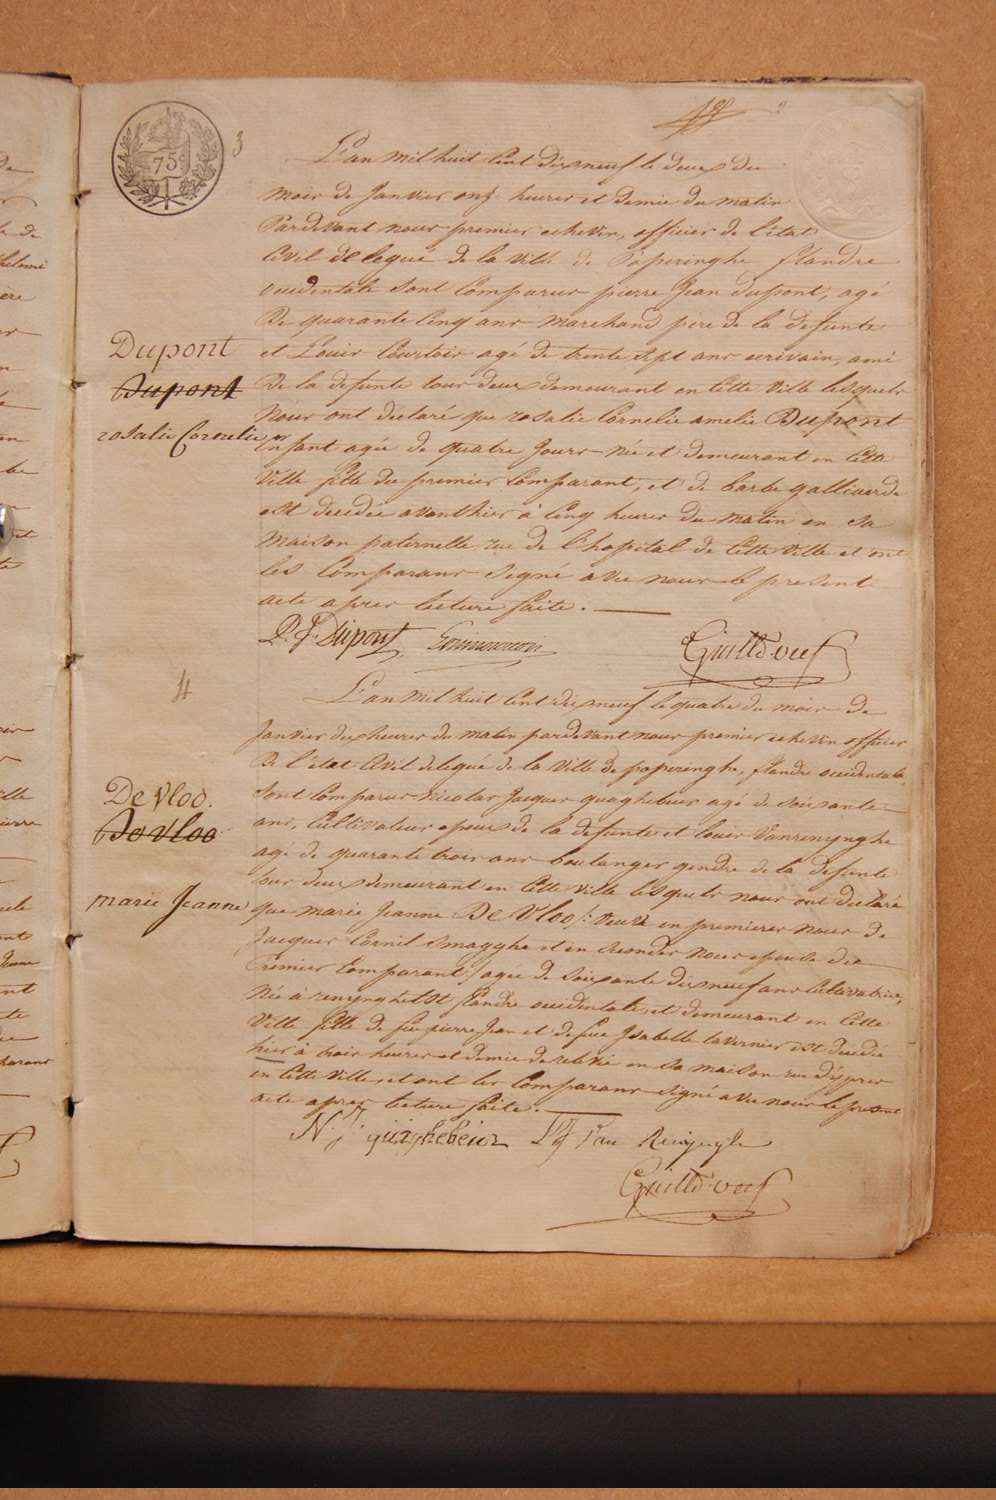 75c
3
L'an mil huit cent dix neuf le deux du
mois de Janvier onz. heures et demie du matin
Pardevant nous premier echevin, officier de l'état
Civil delegué de la ville de Poperinghe flandre
occidentale sont comparus pierre Jean Dupont, agé
De quarante cinq ans marchand pere de la defunte
et Louis Courtois agé de trente sept ans ecrivain, ami
De la defunte tous deux demeurant en cette ville lesquels
Nous ont declaré que rosalie Cornelie amelie Dupont
Enfant agée de quatre Jours née et demeurant en cette
Ville fille du premier Comparant, et de barbe galliaerde
est decedée avanthier à cinq heures du matin en sa
Maison paternelle rue de l'hopital de cette ville et ont
les Comparans signé avec nous le present
acte apres lecture faite.
Dupont
Dupont
rosalie Cornelie
P. J. Dupont
Guilld. vœf
4
L'an mil huit cent dix neuf le quatre du mois de
Janvier dix heures du matin pardevant nous premier echevin officier
De l'état Civil delegué de la ville de poperinghe, flandre occidentale,
sont Comparus Nicolas Jacques quaghebeur agé de soixante
ans, Cultivateur epoux de la defunte et louis Vanrenynghe
agé de quarante trois ans boulanger gendre de la defunte
tous deux demeurant en cette ville lesquels nous ont declaré
que marie Jeanne De Vloo /: Veuve en premieres noces de
Jacques Cornil Smagghe et en secondes noces epouse du
Premier Comparant / agée de soixante dix neuf ans Cultivatrice,
Née à renynghelst flandre occidentale, et demeurant en cette
Ville fille de feu pierre Jean et de feue Isabelle lavernier est decedée
hier à trois heures et demie de relevée en sa maison rue d'ypres
en cette ville, et ont les Comparans signé avec nous le present
acte apres lecture faite.
De Vloo.
De Vloo
marie Jeanne
N: J: quaghebeur
Guilld. vœf